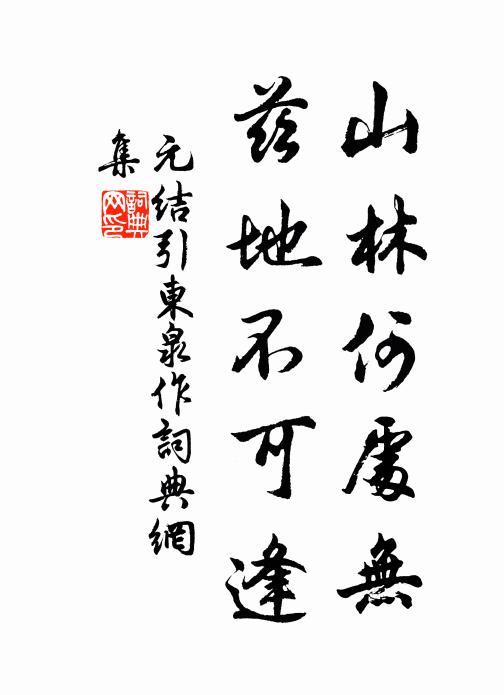 山林何處無
茲地不可逢
元结引東泉作詞典網
集
詞典
网印